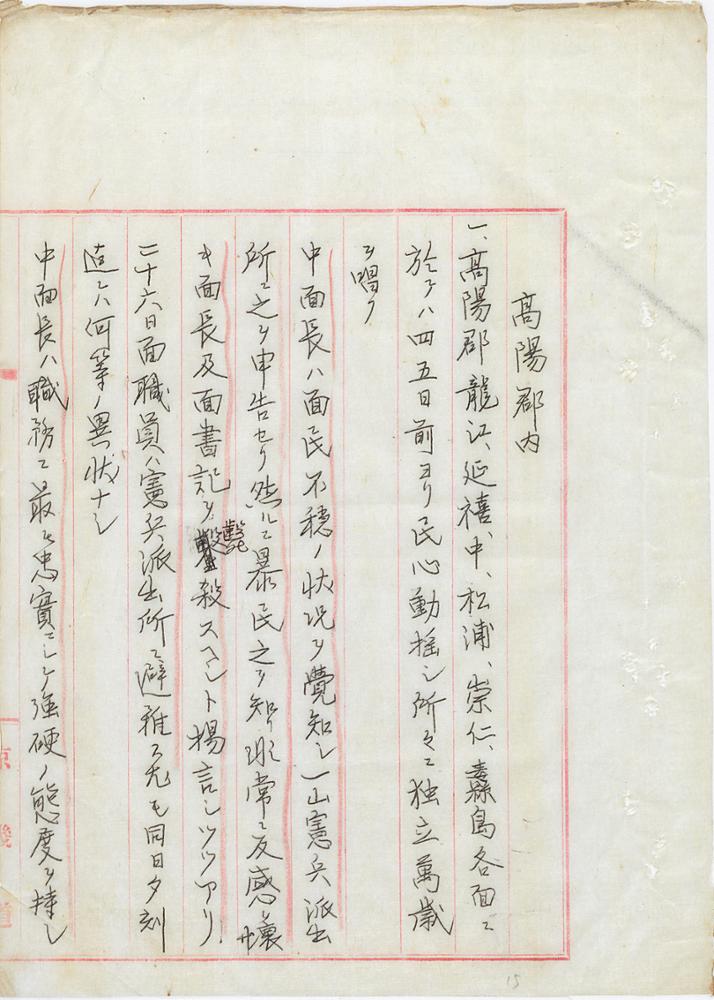 高陽郡内
一、高陽郡龍江、延禧、中、松浦、崇仁、纛島各面ニ
於テハ四五日前ヨリ民心動揺シ所々ニ独立萬歳
ヲ唱フ
中面長ハ面民不穏ノ状況ヲ覺知シ一山憲兵派出
所ニ之ヲ申告セリ然ルニ暴民之ヲ知リ非常ニ反感ヲ懐
キ面長及面書記ヲ殺スヘシト揚言シツツアリ
二十六日面職員ハ憲兵派出所ニ避難ス尤モ同日夕刻
迠ニハ何等ノ異状ナシ
中面長ハ職務ニ最モ忠實ニシテ強硬ノ態度ヲ持シ
京畿道
15